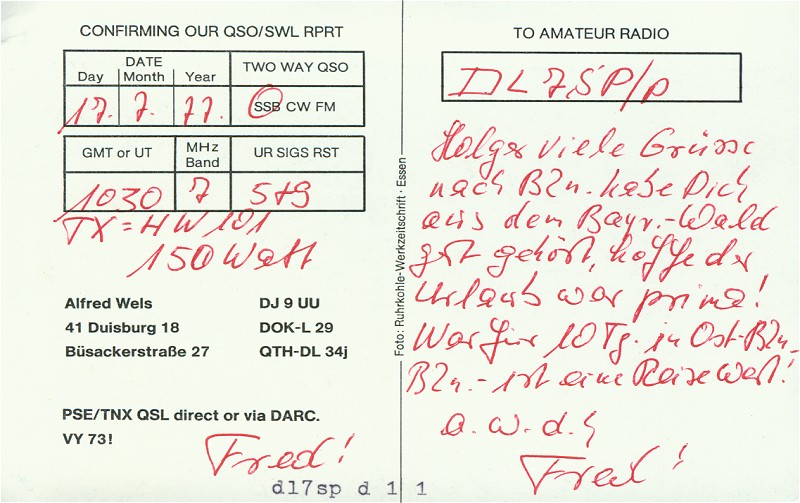 CONFIRMING OUR QSO/SWL RPRT
DATE
Day Month Year
TWO WAY QSO
17. 7. 77.
SSB CW FM
GMT or UT
MHz Band
UR SIGS RST
1030 7 5+9
TX = HW 101
150 Watt
Alfred Wels DJ 9 UU
41 Duisburg 18 DOK-L 29
Büsackerstraße 27 QTH-DL 34j
PSE/TNX QSL direct or via DARC.
VY 73!
Fred!
Foto: Ruhrkohle-Werkzeitschrift · Essen
TO AMATEUR RADIO
DL7SP/p
Holger viele Grüsse
nach Bln. habe Dich
aus dem Bayr.-Wald
gut gehört, hoffe der
Urlaub war prima!
War für 10 Tg. in Ost-Bln.
Bln. - ist eine Reise Wert!
a. w. d. h
Fred!
dl7sp d 1 1